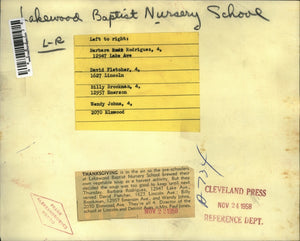 Lakewood Baptist Nursery School
L-R
Left to right:
Barbara Rodriguez, 4,
12947 Lake Ave
David Fletcher, 4,
1627 Lincoln
Billy Brockman, 4,
12957 Emerson
Wendy Johns, 4,
2070 Elmwood
THANKSGIVING is in the air so the pre-schoolers
at Lakewood Baptist Nursery School brewed their
own vegetable soup as a harvest activity. But they
decided the soup was too good to keep until next
Thursday. Barbara Rodriguez, 12947 Lake Ave.,
David Fletcher, 1627 Lincoln Ave., Billy
Brockman, 12957 Emerson Ave., and Wendy Johns,
2070 Elmwood Ave. They're all 4. Director of the
school at Lincoln and Detroit
NOV 22 1958
CLEVELAND PRESS
NOV 24 1958
REFERENCE DEPT.